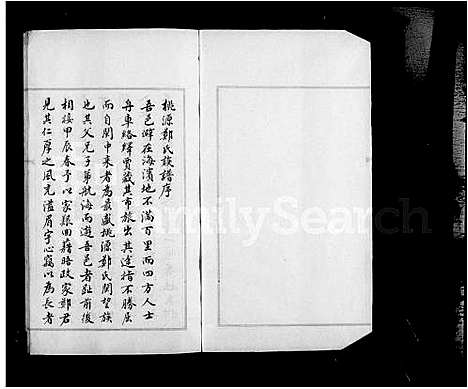 桃源鄭氏族譜序
吾邑僻在海濱地不滿百里而四方人士
舟車絡繹賈藏其市旅出其途指不勝屈
而自閩中來者為最盛桃源鄭氏閩望族
也其父兄子弟航海而遊吾邑者趾前後
相接甲辰春予以家孫回籍晤政家鄭君
見其仁厚之風充溢眉宇心竊以為長者
FamilySearch